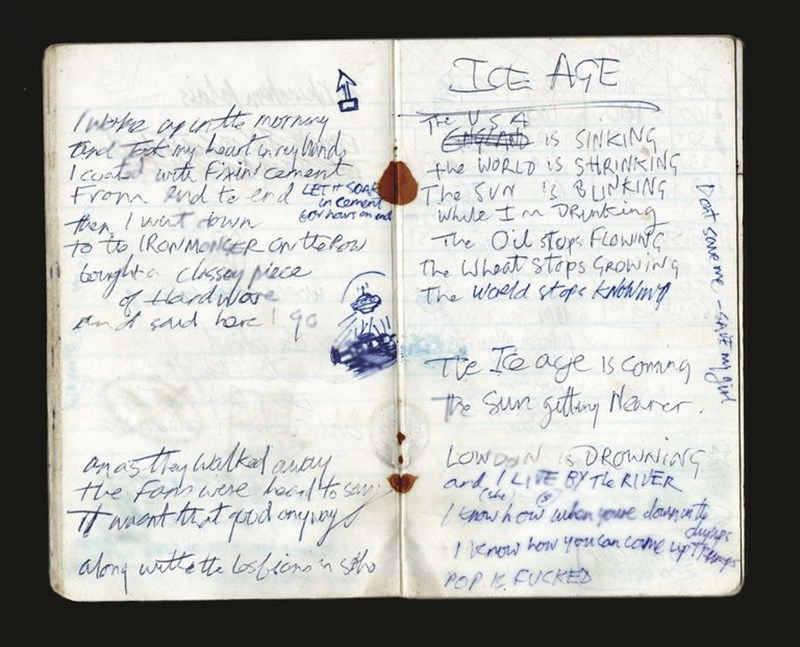 I woke up in the morning
And took my heart in my hands
I coated with Fixin' cement
From End to end
LET IT SOAK
in cement
for hours on end
then I went down
to the IRONMONGER on the Row
bought a classey piece
of Hardware
and said here I go
an as they walked away
the Fans were heard to say
It wasnt that good anyway
along with the lesbians in soho
ICE AGE
The USA
ENGLAND is SINKING
the WORLD IS SHRINKING
The SUN IS BLINKING
while I'm Drinking
The Oil stops FLOWING
The Wheat stops GROWING
The World stops KNOWING
Dont save me - SAVE my girl
The Ice age is coming
the Sun getting Nearer.
LONDON is DROWNING
and I LIVE BY the RIVER
(she)
I know how when youre down in the
dumps
I know how you can come up Trumps
POP IS FUCKED